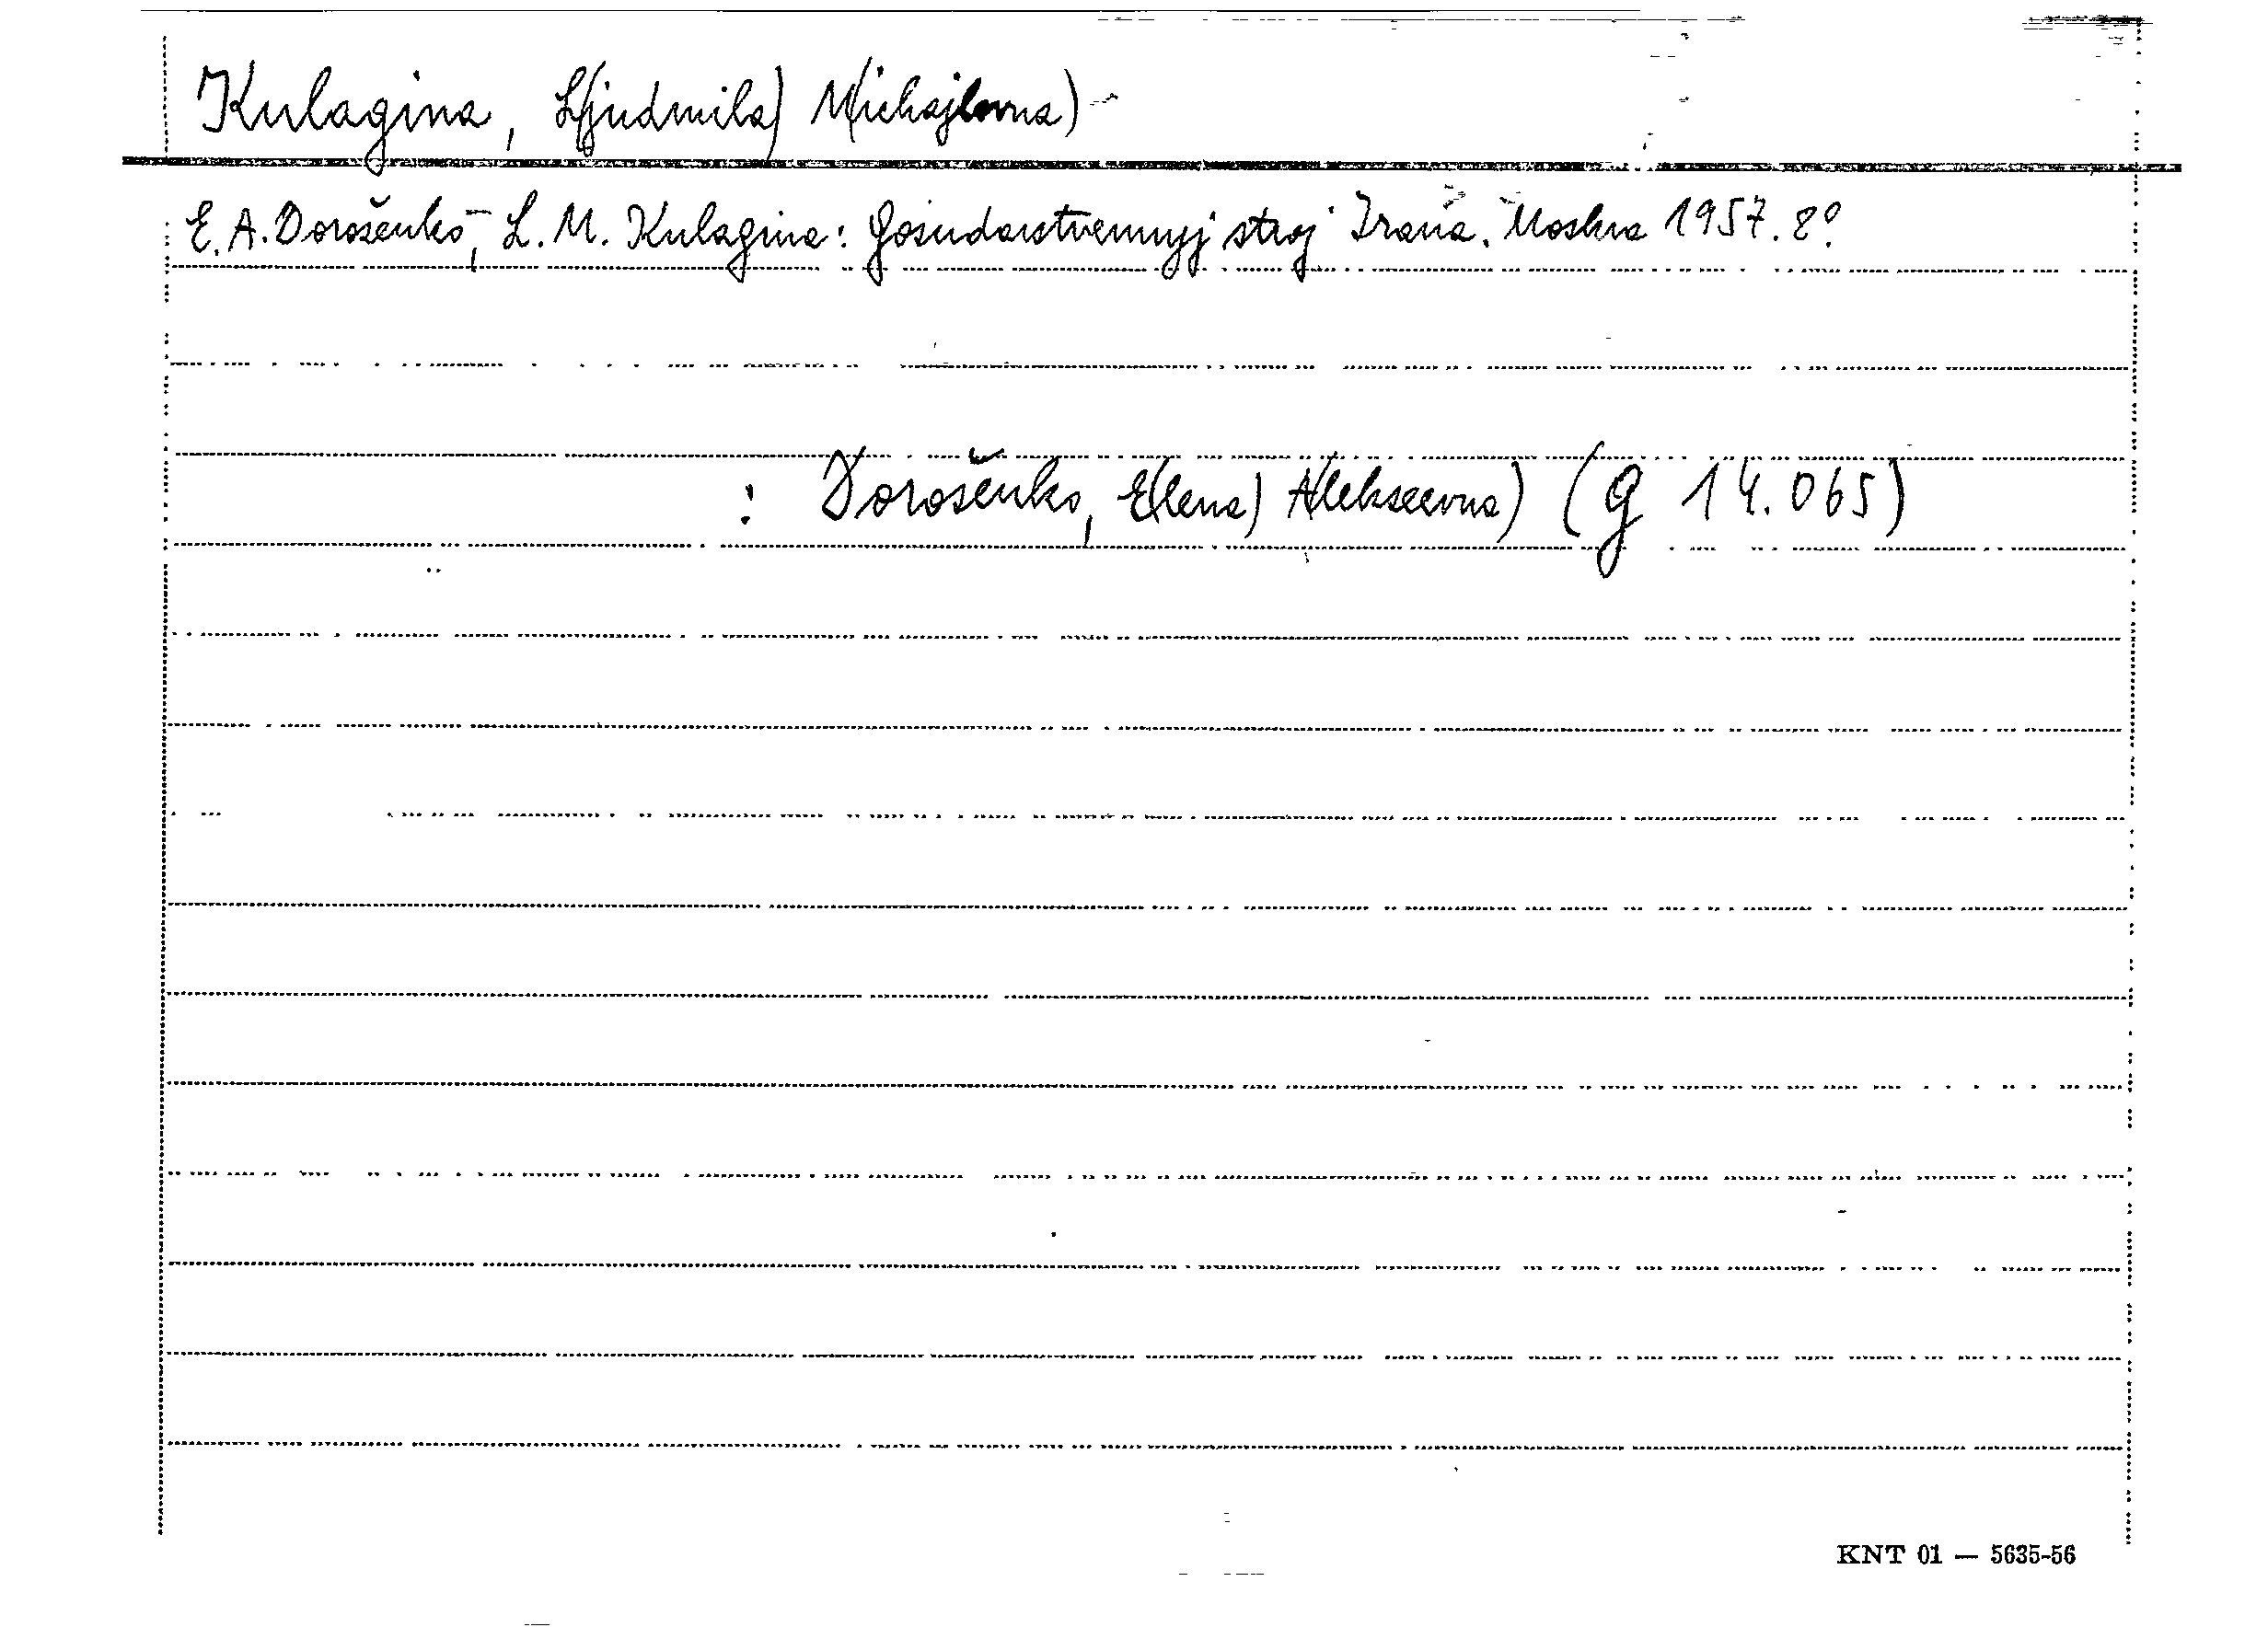 Kulagina, L(judmila) M(ichajlovna)
E. A. Dorošenko, L. M. Kulagina: Gosudarstvennyj stroj Irana. Moskva 1957. 8º.
: Dorošenko, E(lena) A(lekseevna) (G 14.065)
KNT 01 — 5635-56